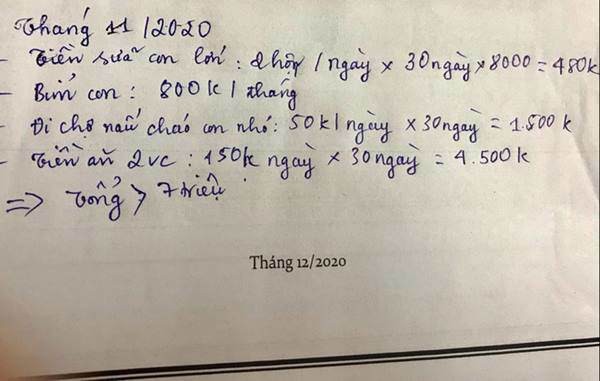 Tháng 11/2020
- Tiền sữa con lớn: 2 hộp / ngày x 30 ngày x 8000 = 480k
- Bỉm con: 800k / tháng
- Đi chợ nấu cháo con nhỏ: 50k/ ngày x 30 ngày = 1.500k
- Tiền ăn 2vc: 150k ngày x 30 ngày = 4.500k
=> Tổng > 7 triệu
Tháng 12/2020